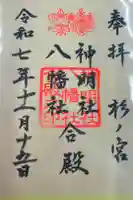 奉拝 杉ノ宮
神明社
八幡社
合殿
令和七年十一月十五日